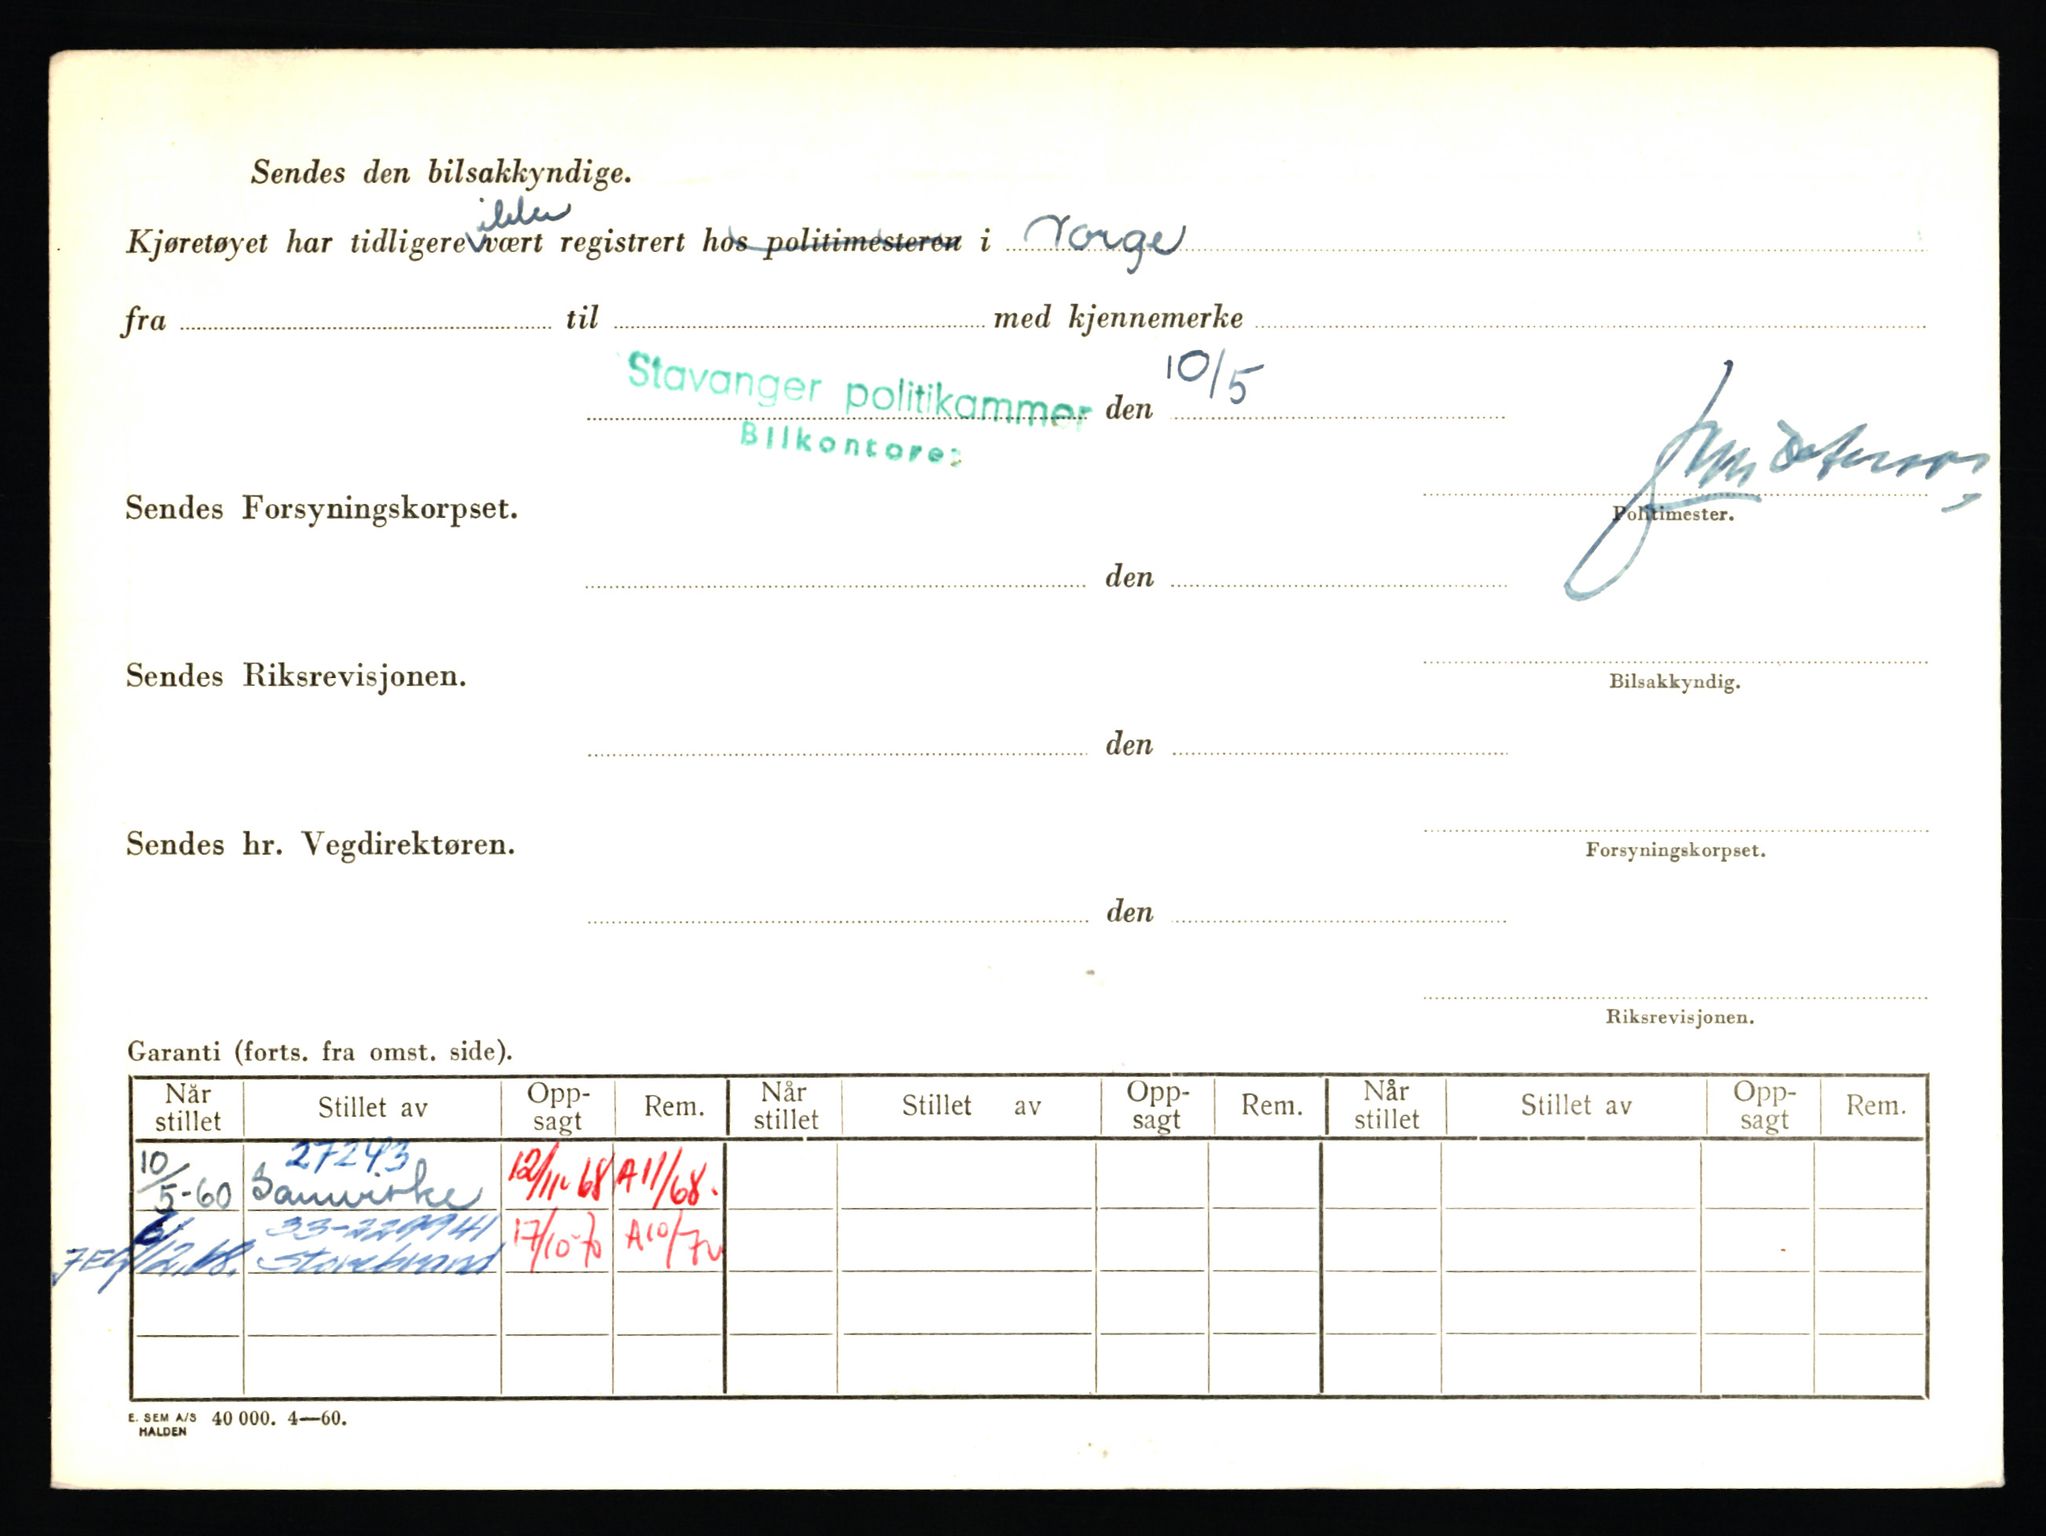 Sendes den bilsakkyndige.
ikke
Kjøretøyet har tidligere vært registrert hos politimesteren i Norge
fra til med kjennemerke
Stavanger politikammer den 10/5
Bilkontoret
Sendes Forsyningskorpset.
Politimester.
den
Sendes Riksrevisjonen.
Bilsakkyndig.
den
Sendes hr. Vegdirektøren.
Forsyningskorpset.
den
Riksrevisjonen.
Garanti (forts. fra omst. side).
Når stillet Stillet av Opp-sagt Rem. Når stillet Stillet av Opp-sagt Rem. Når stillet Stillet av Opp-sagt Rem.
27243
10/5-60 Samvirke 12/11-68 A11/68.
17/10-70 A10/70
Storebrand
E. SEM A/S 40 000. 4—60.
HALDEN